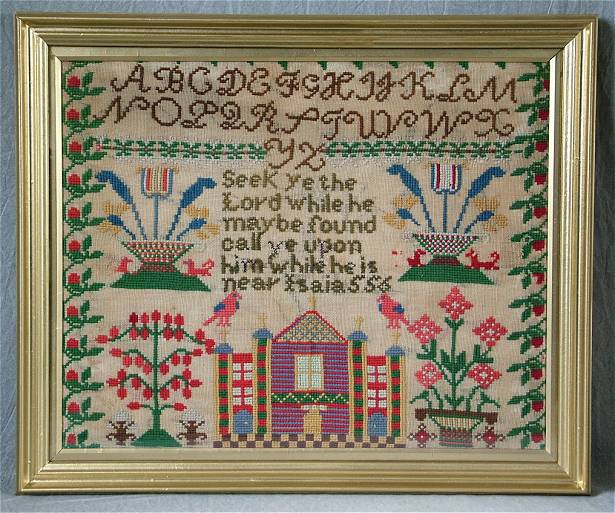 A B C D E F G H I J K L M
N O P Q R S T U V W X
Y Z
Seek ye the
Lord while he
may be found
call ye upon
him while he is
near Isaia 55 6